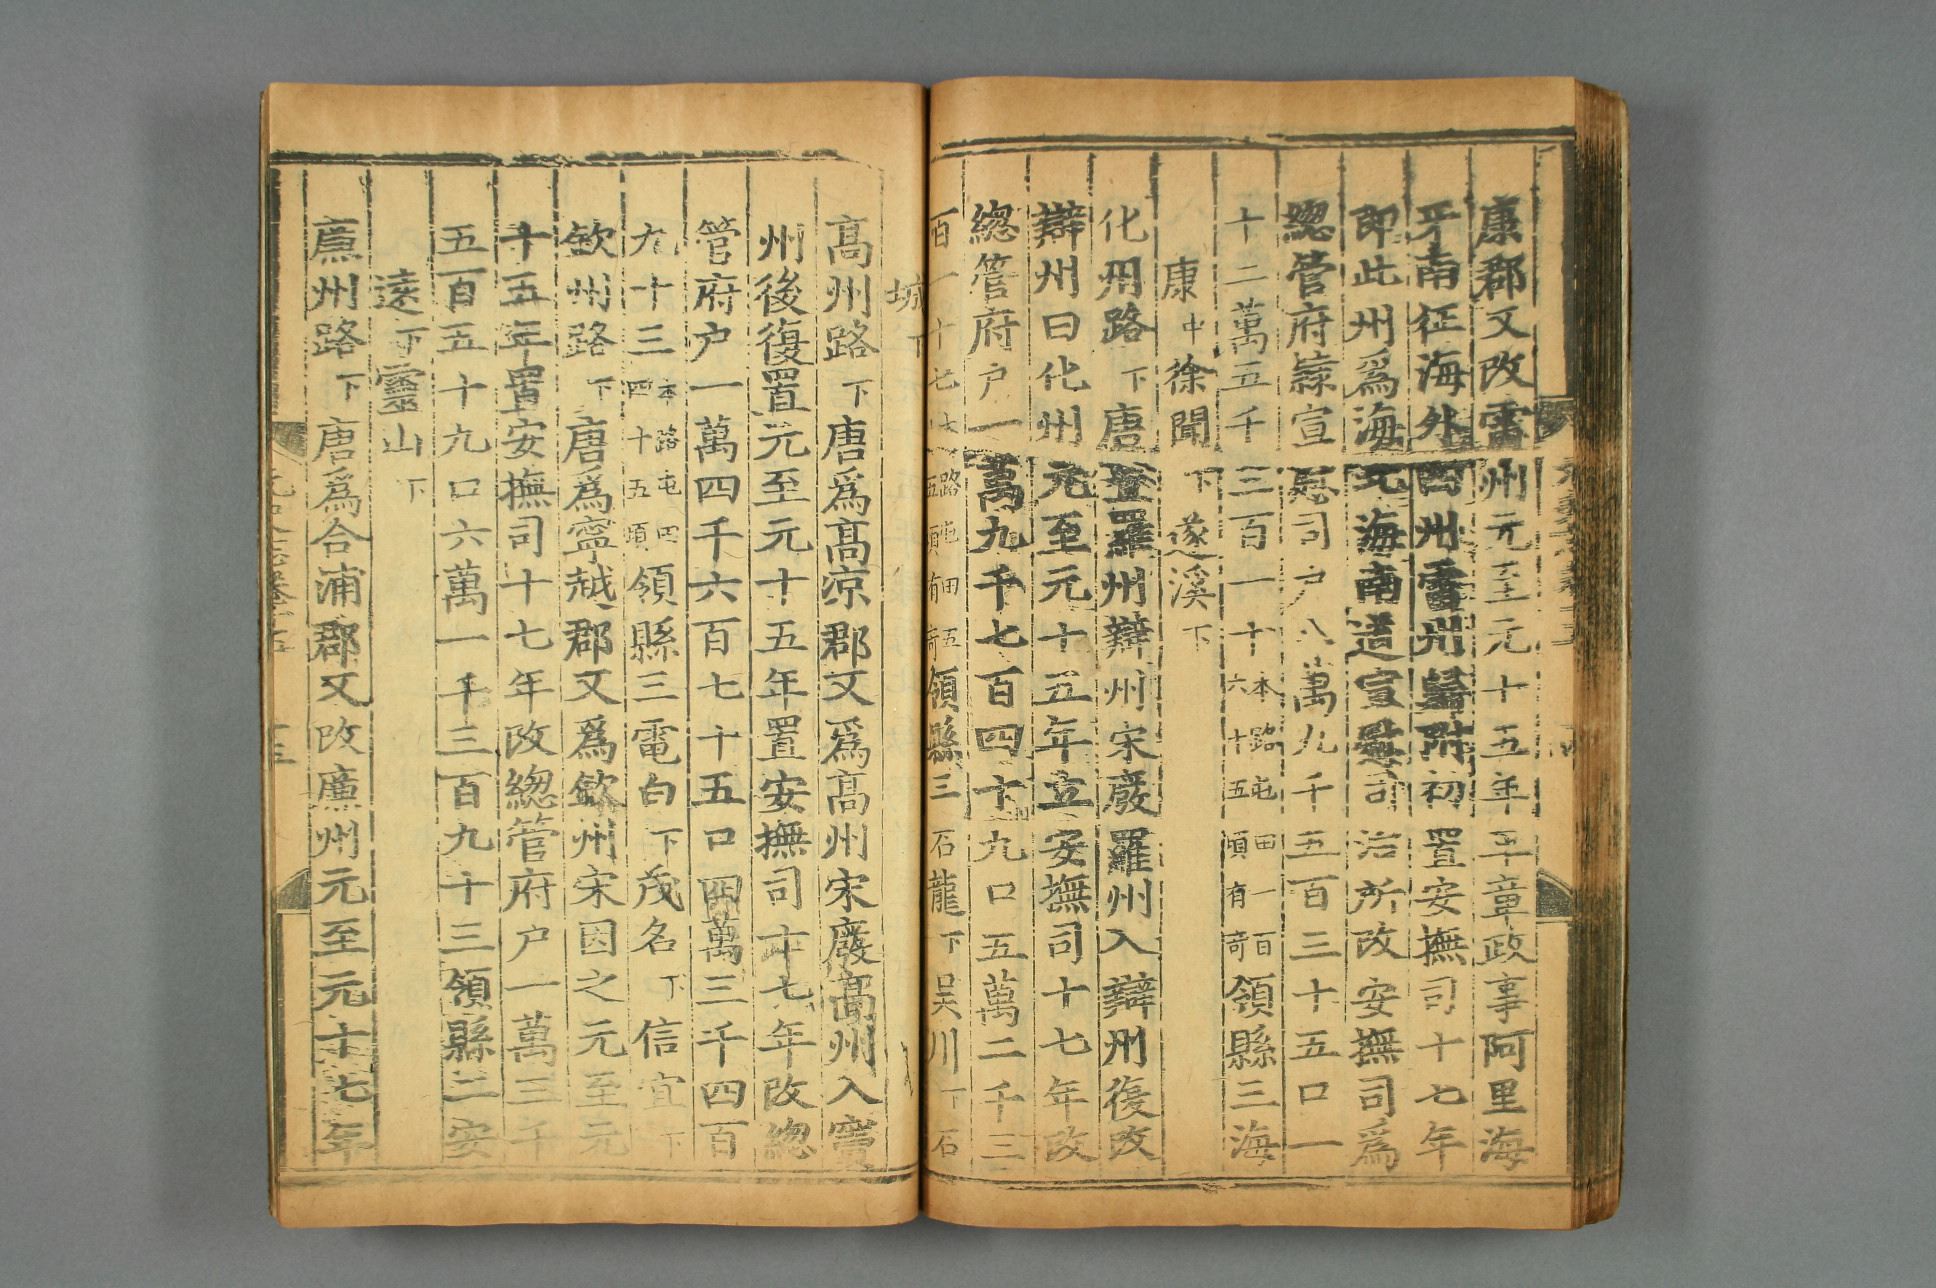 康郡又改雷州元至元十五年平章政事阿里海
牙南征海外四州雷州歸附初置安撫司十七年
即此州爲海北海南道宣慰司治所改安撫司爲
總管府隸宣慰司户八萬九千五百三十五口一
十二萬五千三百一十本路屯田一百六十五頃有奇領縣三海
康中徐聞下遂溪下
化州路下唐 羅州辯州宋廢羅州入辯州復改
辯州曰化州元至元十五年立安撫司十七年改
總管府户一萬九千七百四十九口五萬二千三
百一十七本路屯田五十五頃有奇領縣三石龍下吳川下石
城下
高州路下唐爲高涼郡又爲高州宋廢高州入竇
州後復置元至元十五年置安撫司十七年改總
管府户一萬四千六百七十五口四萬三千四百
九十三本路屯田四十五頃領縣三電白下茂名下信宜下
欽州路下唐爲寧越郡又爲欽州宋因之元至元
十五年置安撫司十七年改總管府户一萬三千
五百五十九口六萬一千三百九十三領縣二安
遠下靈山下
廉州路下唐爲合浦郡又改廉州元至元十七年